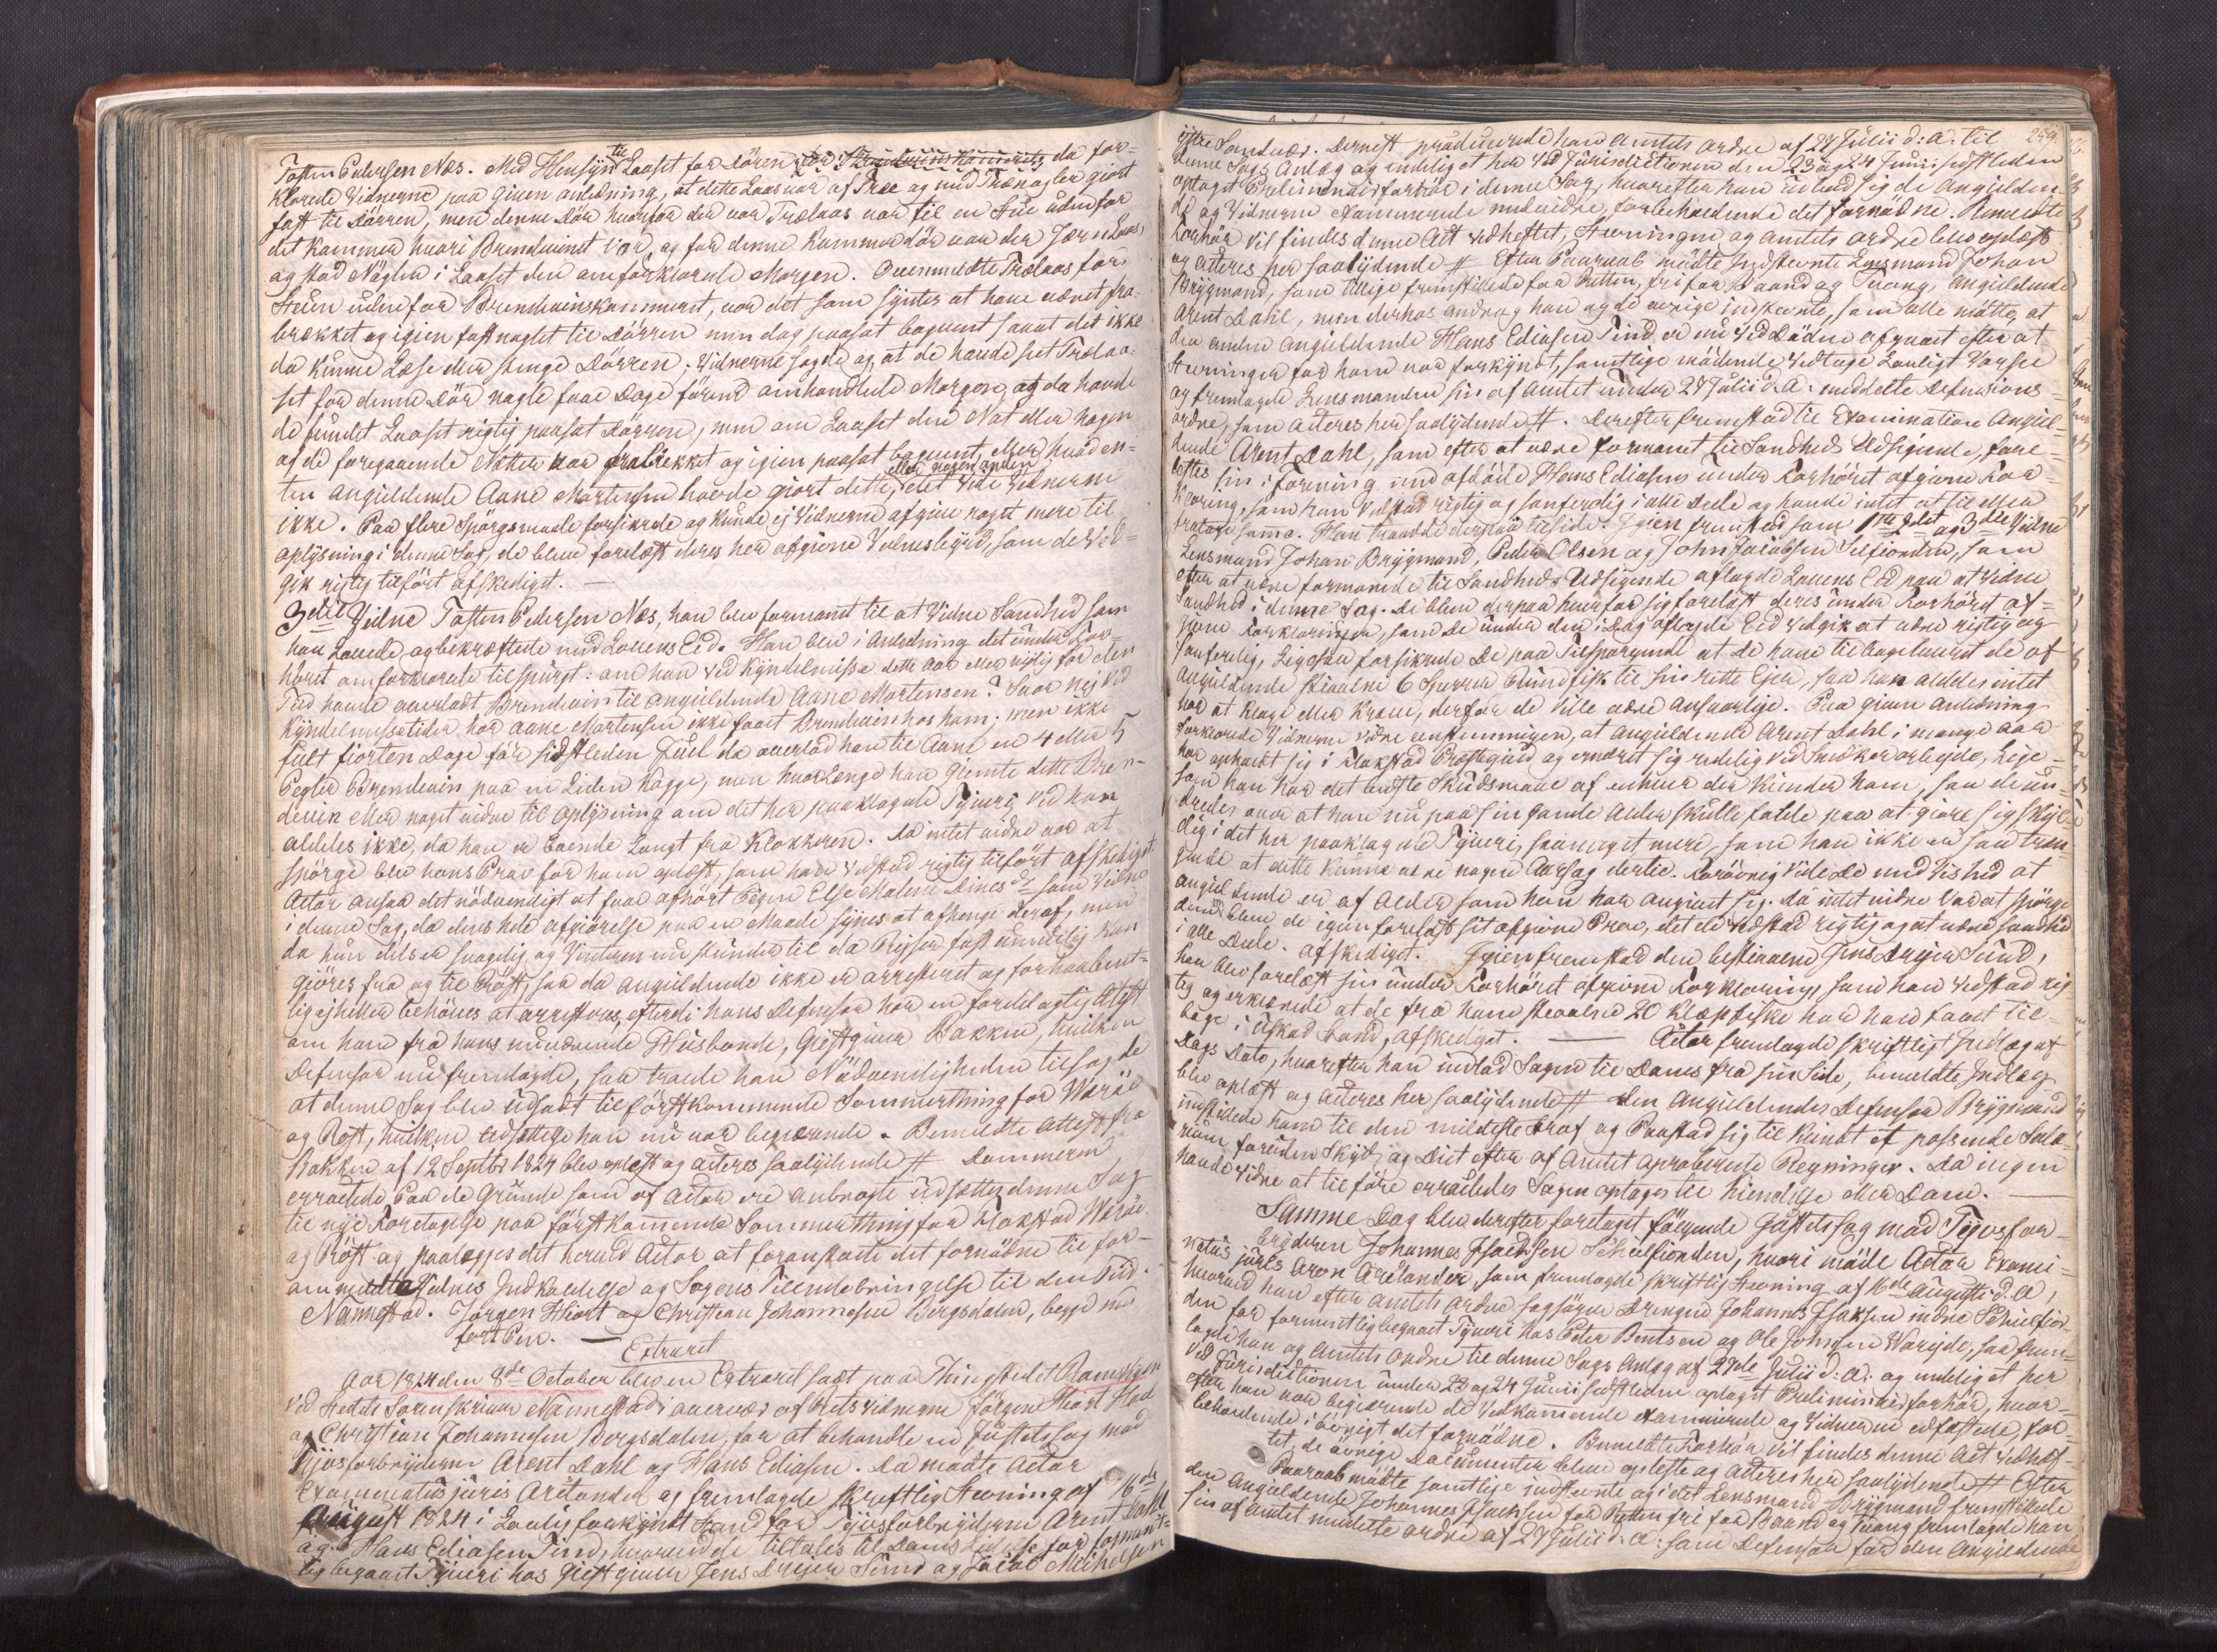 Tosten Pedersen Næs. Med Hensyn til Laaset for Dören til Brendeviinskammeret, da for=
klarede Vidnerne paa given anledning, at dette Laas var af Træe og med Trænagler giort
fast til Dörren, men denne Dör hvorfor der var Trælaas var til en Stue udenfor
det Kammer hvori Brendevinet var, og for denne Kammerdör var der Jærn Laas,
og stod Nöglen i Laaset den omforklarede Morgen. Ovenmeldte Trælaas for
Stuen udenfor Brendevinskammeret, var det som syntes at have været fra=
brækket og igien fastnaglet til Dörren men dog paasat bagvent saaat det ikke
da kunne Læse eller stenge Dörren. Vidnerne sagde og, at de havde set Trælaa=
set for denne Dör nogle faae Dage förend omhandlede Morgen, og da havde
de fundet Laaset rigtig paasat Dörren, men om Laaset den Nat eller nogen
af de foregaaende Nætter var frabrækket og igien paasat bagvent, eller hvad en=
ten angieldende Aane Mortensen havde giort dette, eller nogen anden det Vide Vidnerne
ikke. Paa flere Spörgsmaale forsikrede og kunde ej Vidnerne afgive noget mere til
oplysning i denne Sag, de bleve forelæst deres her afgivne Vidnesbyrd, som de Ved=
gik rigtig tilfört afskediget. —
3die Vidne Tosten Pedersen Næs, han blev formanet til at Vidne Sandhed som
han Lovede, og bekræftede med Lovens Eed. Han blev i Anledning det under For=
höret omforklarede tilspurgt: om han ved Kyndelmisse dette Aar eller nylig for den
Tiid havde overladt Brendeviin til angieldende Aane Mortensen? Svar Nej Ved
Kyndelmissetider har Aane Mortensen ikke faaet Brendeviin hos ham; men ikke
fult fiorten Dage för sidstleden Juul da overlod han til Aane en 4 eller 5
Pægler Brendeviin paa en Liden Kagge, men hvorlenge han Giemte dette Bren=
deviin eller noget videre til oplysning om det her paaklagede Tyverie, ved han
aldeles ikke, da han er boende Langt fra Klokkeren. Da intet videre var at
spörge blev hans Prov for ham oplæst, som han vedstod rigtig tilfört afskediget.
Actor ansaa det nödvendigt at faae afhört Pigen Else Malene Dines D. som Vidne
i denne Sag, da dens hele afgiörelse paa en Maade synes at afhenge deraf, men
da hun dels er svagelig og Vinteren nu stunder til da Rejser fast umuelig kan
giöres fra og til Röst, saa da angieldende ikke er arresteret og forhaabent=
lig ej heller behöves at arresteres, efterdi hans Defensor har en fordelagtig Atest
om ham fra hans nuværende Huusbonde, Giestgiver Bakken, hvilken
Defensor nu fremlagde, saa troede han Nödvendigheden tilsagde
at denne Sag blev udsadt til förstkommende Sommerthing for Wæröe
og Röst, hvilken udsættelse han nu var begiærende. Bemeldte Attest fra
Bakken af 12 Septbr 1824 blev oplæst og acteres saalydende #. Dommeren
erragtede paa de Grunde som af Actor ere anbragte udsættes denne Sag
til nye Foretagelse paa förstkommende Sommerthing for Flakstad Wæröe
og Röst og paalægges det herved Actor at foranstalte det fornödne til for=
ommeldte Vidnes Indkaldelse og Sagens Tilendebringelse til den Tiid.
Nannestad. Jörgen Hiort og Christian Johannesen Bergsdalen, begge med
fört Pen. —
Extraret
Aar 1824 den 8de October blev en Extraret sadt paa Thingstedet Ramsvigen
ved Stedets Sorenskriver Nannestad, i overvær af Retsvidnerne Jörgen Hiort Hoel
og Christian Johannesen Bergsdalen, for at behandle en Justitssag mod
Tyvsforbryderne Arent Dahl og Hans Ediasen. Da mödte Actor
Examinatus juris Arclander og fremlagde skreftlig Stevning af 16de
August 1824 i Lovlig forkyndt Stand for Tyvsforbryderne Arent Dahl
og Hans Ediasen Tind, hvorved de tiltales til Doms Lidelse for forment=
lig begaaet Tyveri hos Giestgiver Jens Dreyer Sund og Jacob Michelsen
259.
Yttre Sandnæs. Dernest producerede han Amtets ordre af 27 Julii d: A: til
denne Sags Anlæg og endelig et her ved Jurisdictionen den 23 og 24 Junii sidstleden
optaget Preliminairforhör i denne Sag, hvorefter han udbad sig de angielden=
de og Vidnerne examinerede med videre, forbeholdende det fornödne. Bemeldte
Forhör Vil findes denne Act vedheftet, Stevningen og Amtets ordre blev oplæst
og acteres her saalydende #. Efter Paaraab mödte Indstevnte Lensmand Johan
Brygmand, som tillige fremstillede for Retten, fri for Baand og Tvang, Angieldende
Arent Dahl, men derhos androg han og de övrige indstevnte, som alle mötte, at
den anden angieldende Hans Ediasen Tind er nu ved Döden afgaaet efter at
Stevningen for ham var forkyndt, samtlige mödende vedtage Lovligt Varsel
og fremlagde Lensmanden sin af Amtet under 27 Julii d. A: meddelte Defensions=
ordre, som acteres her saalydende #. Derefter fremstod til Examination angiel=
dende Arent Dahl, som efter at være formanet til Sandheds Udsigende, fore=
lættes sin i Forening med afdöde Hans Ediasens under Forhöret afgivne For=
klaring, som han Vedstod rigtig og sanferdig i alle Deele og havde intet at til eller
fratage samme. Han traadde derpaa tilside. Igien fremstod som 1ste 2det og 3die Vidne
Lensmand Johan Brygmand, Peder Olsen og John Jacobsen Selfiorden, som
efter at være formanede til Sandheds Udsigende aflagde Lovens Eed paa at Vidne
Sandhed i denne Sag. De bleve derpaa hver for sig forelæst deres under Forhöret af=
givne Forklaringer, som de under den i Dag aflagde Eed vedgik at være rigtig og
sanferdig, Ligesaa forsikrede de paa Tilspörgende at de have tilbageleveret de af
angieldende stiaalne 6 Spærrer blindfisk til sin rette Ejer, saa han aldeles intet
har at klage eller kræve, derfor de ville være ansvarlige. Paa given anledning
forklarede Vidnerne videre eenstemmigen, at angieldende Arent Dahl i mange Aar
har opholdt sig i Flakstad Præstegield og ernæret sig redelig ved Snedkerarbejde, Lige=
som han har det beste Skudsmaal af enhver der kiender ham, saa de un=
dredes over at han nu paa sin gamle Alder skulle falde paa at giöre sig skyl=
dig i det her paaklagede Tyverie, saameget mere, som han ikke er saa træn=
gende at dette kunne være nogen Aarsag dertil. Forövrig Vide de med Vished at
angieldende er af Alder som han har angivet sig. Da intet videre var at spörge
dem bleve de igien forelæst sit afgivne Prov, det de vedstod rigtig og at være Sandhed
i alle Deele. afskediget. Igien fremstod den bestiaalne Jens Dreyer Sund,
han blev forelæst sin under Forhöret afgivne Forklaring, som han vedstod rig
tig og erkiendte at de fra ham stiaalne 20 Klepfiske har han faaet til=
bage i uskad Stand, afskediget. — Actor fremlagde skriftligt Indlæg af
Dags Dato, hvorefter han indlod Sagen til Doms fra sin Side, bemeldte Indlæg
blev oplæst og acteres her saalydende #. Den Angieldendes Defensor Brygmand
indstillede ham til den mildeste Straf og Paastod sig tilkiendt et passende Sala=
rium foruden Skyds og Diet efter af Amtet aproberede Regninger. Da ingen
havde videre at tilföre erragtedes Sagen optages til Kiendelse eller Dom. —
Samme Dag blev derefter foretaget fölgende Justitssag mod Tyvsfor=
bryderen Johannes Isachsen Schielfiorden, hvori mödte Actor Exami=
natus juris Aron Arclander, som fremlagde skriftlig Stevning af 16de Augusti d. A,
hvorved han efter Amtets ordre sagsöger Drengen Johannes Isaksen indre Schielfior=
den for formentlig begaaet Tyveri hos Peter Bentsen og Ole Johnsen Warejde, saa frem=
lagde han og Amtets Ordre til denne Sags Anlæg af 27de Julii d: A: og endelig et her
ved Jurisdictionen under 23 og 24 Junii sidstleden optaget Preliminairforhör, hvor=
efter han var begiærende de Vedkommende examinerede og Vidnerne edfæstede, for=
beholdende i övrigt det fornödne. Bemeldte Forhör Vil findes denne Act vedhef=
tet, de övrige Documenter bleve oplæste og acteres her saalydende #. Efter
Paaraab mödte samtlige indstevnte og i det Lensmand Brygmand fremstillede
den angieldende Johannes Isachsen for Retten fri for Baand og Tvang fremlagde han
sin af Amtet meddelte ordre af 27 Julii d. A: som Defensor for den angieldende